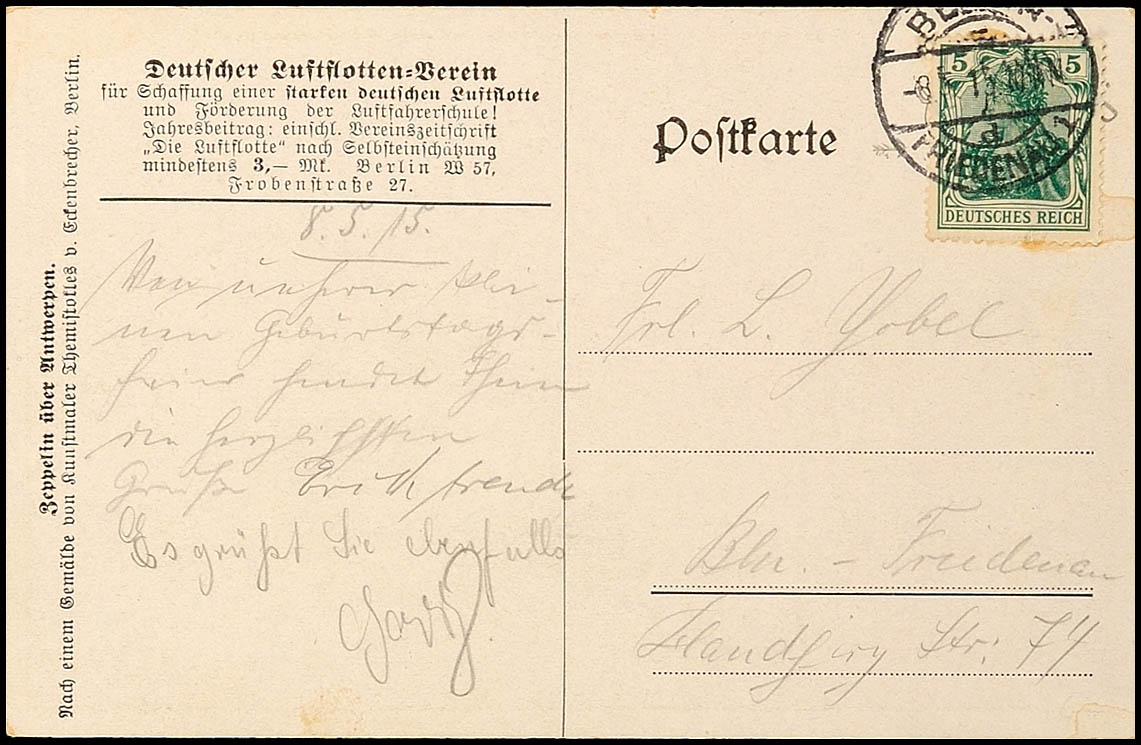 Deutscher Luftflotten-Verein
für Schaffung einer starken deutschen Luftflotte
und Förderung der Luftfahrerschule!
Jahresbeitrag: einschl. Vereinszeitschrift
„Die Luftflotte“ nach Selbsteinschätzung
mindestens 3,— Mk. Berlin W 57,
Frobenstraße 27.
Zeppelin über Antwerpen.
Nach einem Gemälde von Kunstmaler Themistokles v. Eckenbrecher, Berlin.
8. 5. 15.
Von unserer klei-
nen Geburtstags-
feier sendet Ihnen
die herzlichsten
Grüße Erich
Es grüßt Sie ebenfalls
Postkarte
BERLIN-
FRIEDENAU 1
d
5 5
DEUTSCHES REICH
Frl. L. Yobel
Bln. - Friedenau
Str. 74